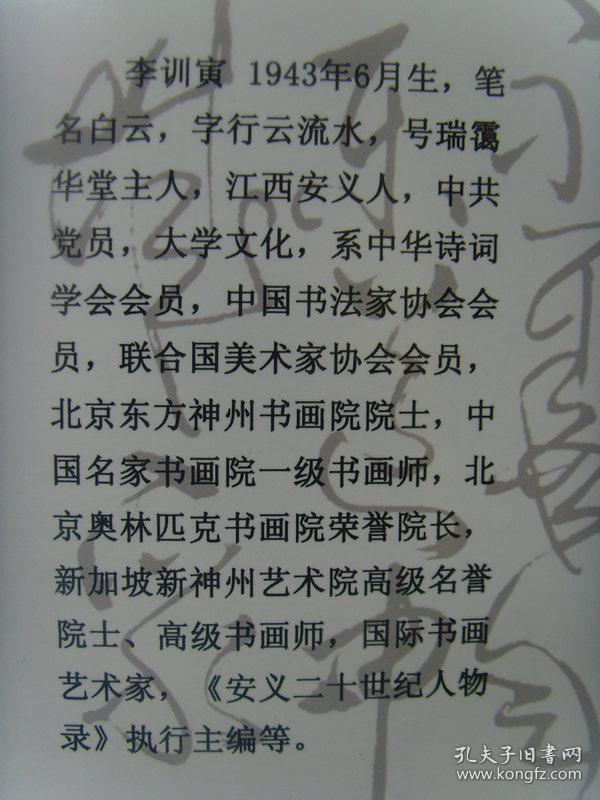 李训寅 1943年6月生，笔
名白云，字行云流水，号瑞霭
华堂主人，江西安义人，中共
党员，大学文化，系中华诗词
学会会员，中国书法家协会会
员，联合国美术家协会会员，
北京东方神州书画院院士，中
国名家书画院一级书画师，北
京奥林匹克书画院荣誉院长，
新加坡新神州艺术院高级名誉
院士、高级书画师，国际书画
艺术家，《安义二十世纪人物
录》执行主编等。
孔夫子旧书网
www.kongfz.com